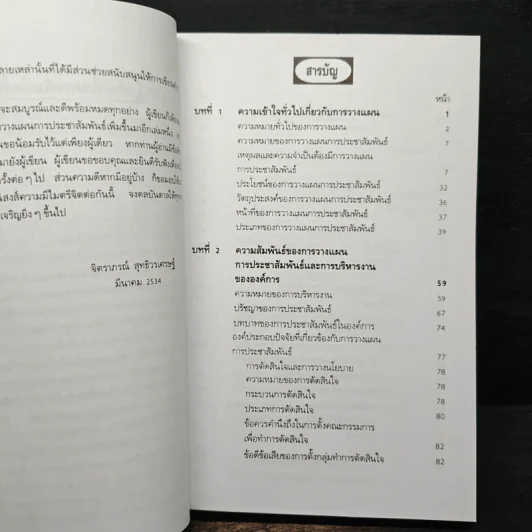 ลายเหล่านั้นที่ได้มีส่วนช่วยสนับสนุนให้การเขียน
จะสมบูรณ์และดีพร้อมหมดทุกอย่าง ผู้เขียน
วางแผนการประชาสัมพันธ์เพิ่มขึ้นมาอีกเล่มหนึ่ง
ขอน้อมรับไว้แต่เพียงผู้เดียว หากท่านผู้อ่าน
มายังผู้เขียน ผู้เขียนขอขอบคุณและยินดีรับฟัง
ครั้งต่อ ๆ ไป ส่วนความดีหากมีอยู่บ้าง ก็ขอมอบ
นสงส์ความมีไมตรีจิตต่อกันนี้ จงดลบันดาลให้
เจริญยิ่ง ๆ ขึ้นไป
จิตราภรณ์ สุทธิวรเศรษฐ์
มีนาคม 2534
สารบัญ
หน้า
บทที่ 1 ความเข้าใจทั่วไปเกี่ยวกับการวางแผน 1
ความหมายทั่วไปของการวางแผน 2
ความหมายของการวางแผนการประชาสัมพันธ์ 7
เหตุผลและความจำเป็นต้องมีการวางแผน
การประชาสัมพันธ์ 7
ประโยชน์ของการวางแผนการประชาสัมพันธ์ 32
วัตถุประสงค์ของการวางแผนการประชาสัมพันธ์ 36
หน้าที่ของการวางแผนการประชาสัมพันธ์ 37
ประเภทของการวางแผนการประชาสัมพันธ์ 39
บทที่ 2 ความสัมพันธ์ของการวางแผน
การประชาสัมพันธ์และการบริหารงาน
ขององค์การ 59
ความหมายของการบริหารงาน 59
ปรัชญาของการประชาสัมพันธ์ 67
บทบาทของการประชาสัมพันธ์ในองค์การ 74
องค์ประกอบปัจจัยที่เกี่ยวข้องกับการวางแผน
การประชาสัมพันธ์ 77
การตัดสินใจและการวางนโยบาย 78
ความหมายของการตัดสินใจ 78
กระบวนการตัดสินใจ 78
ประเภทการตัดสินใจ 80
ข้อควรคำนึงถึงในการตั้งคณะกรรมการ
เพื่อทำการตัดสินใจ 82
ข้อดีข้อเสียของการตั้งกลุ่มทำการตัดสินใจ 82